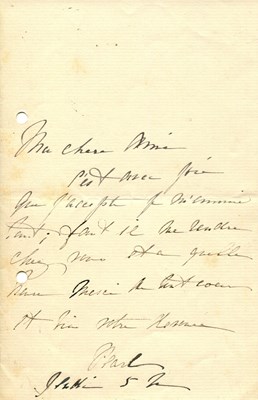 Ma chere Aimé
C'est avec joie
que j'accepte je m'ennuie
tant; faut il me rendre
chez vous et a quelle
heure Merci de tout coeur
et bien votre
Pearl
5 h